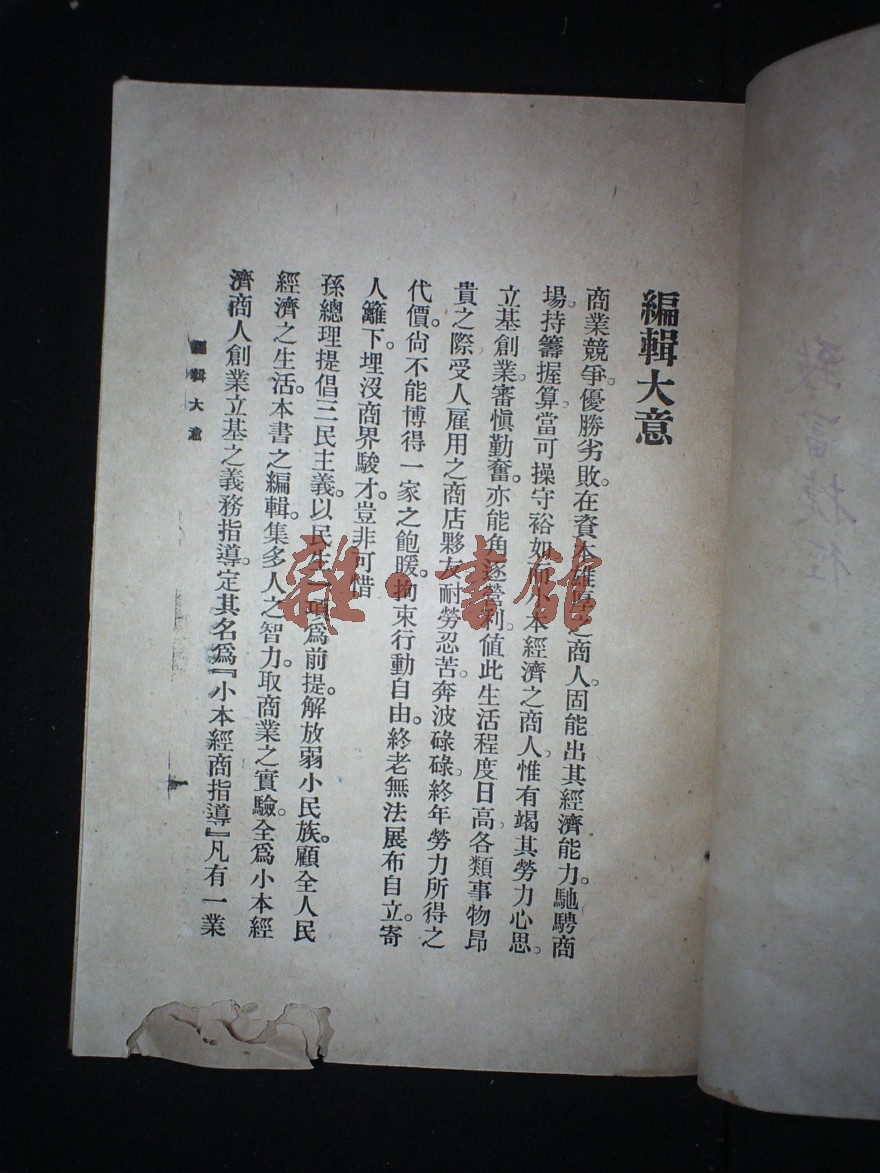 編輯大意
商業競爭。優勝劣敗。在資本雄厚之商人。固能出其經濟能力。馳騁商
場。持籌握算。當可操守裕如。而小本經濟之商人。惟有竭其勞力心思。
立基創業。審愼勤奮。亦能角逐營利。值此生活程度日高。各類事物昂
貴之際。受人雇用之商店夥友。耐勞忍苦。奔波碌碌。終年勞力所得之
代價。尙不能博得一家之飽暖。拘束行動自由。終老無法展布自立。寄
人籬下。埋沒商界駿才。豈非可惜
孫總理提倡三民主義。以民生一項爲前提。解放弱小民族。顧全人民
經濟之生活。本書之編輯。集多人之智力。取商業之實驗。全爲小本經
濟商人創業立基之義務指導。定其名爲『小本經商指導』凡有一業
編輯大意
致富捷徑
雜·書館